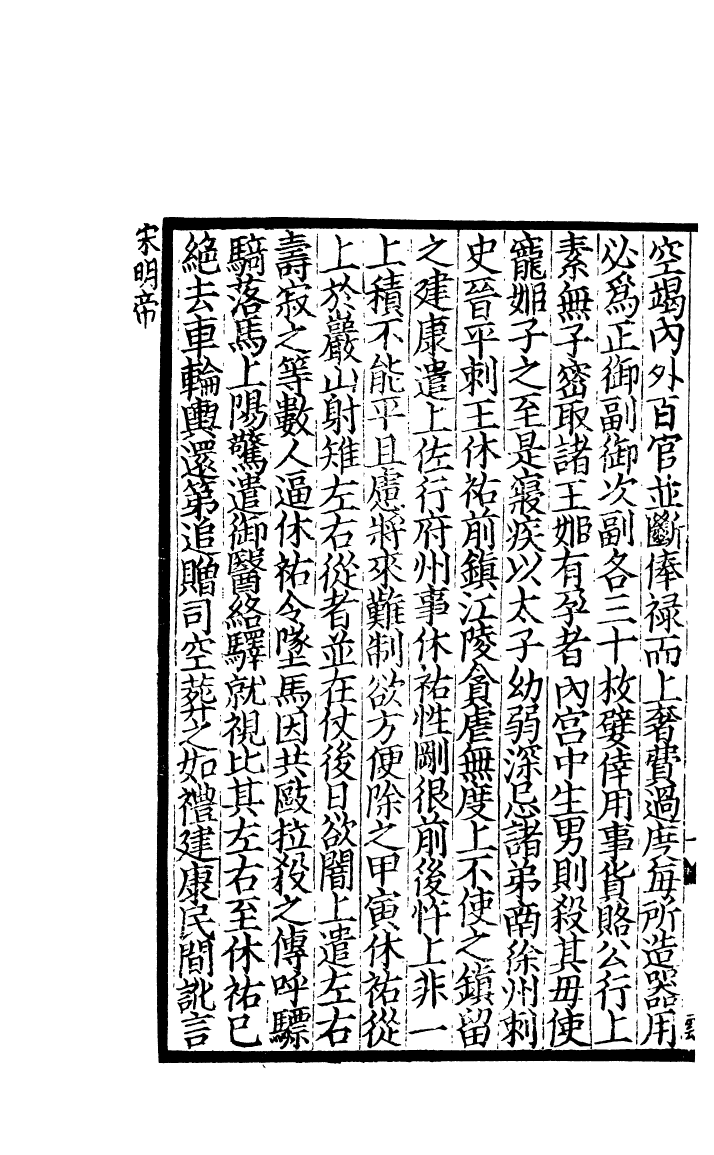 空竭內外百官並斷俸禄而上奢費過度每所造器用
必爲正御副御次副各三十枚嬖倖用事貨賂公行上
素無子宻取諸王姬有孕者內宮中生男則殺其毋使
寵姬子之至是寢疾以太子幼弱深忌諸弟南徐州刺
史晉平刺王休祐前鎮江陵貪虐無度上不使之鎮留
之建康遣上佐行府州事休祐性剛很前後忤上非一
上積不能平且慮將來難制欲方便除之甲寅休祐從
上於巖山射雉左右從者並在仗後日欲闇上遣左右
壽寂之等數人逼休祐令墜馬因共毆拉殺之傳呼驃
騎落馬上陽驚遣御醫絡驛就視比其左右至休祐已
絕去車輪輿還第追贈司空葬之如禮建康民間訛言
宋明帝